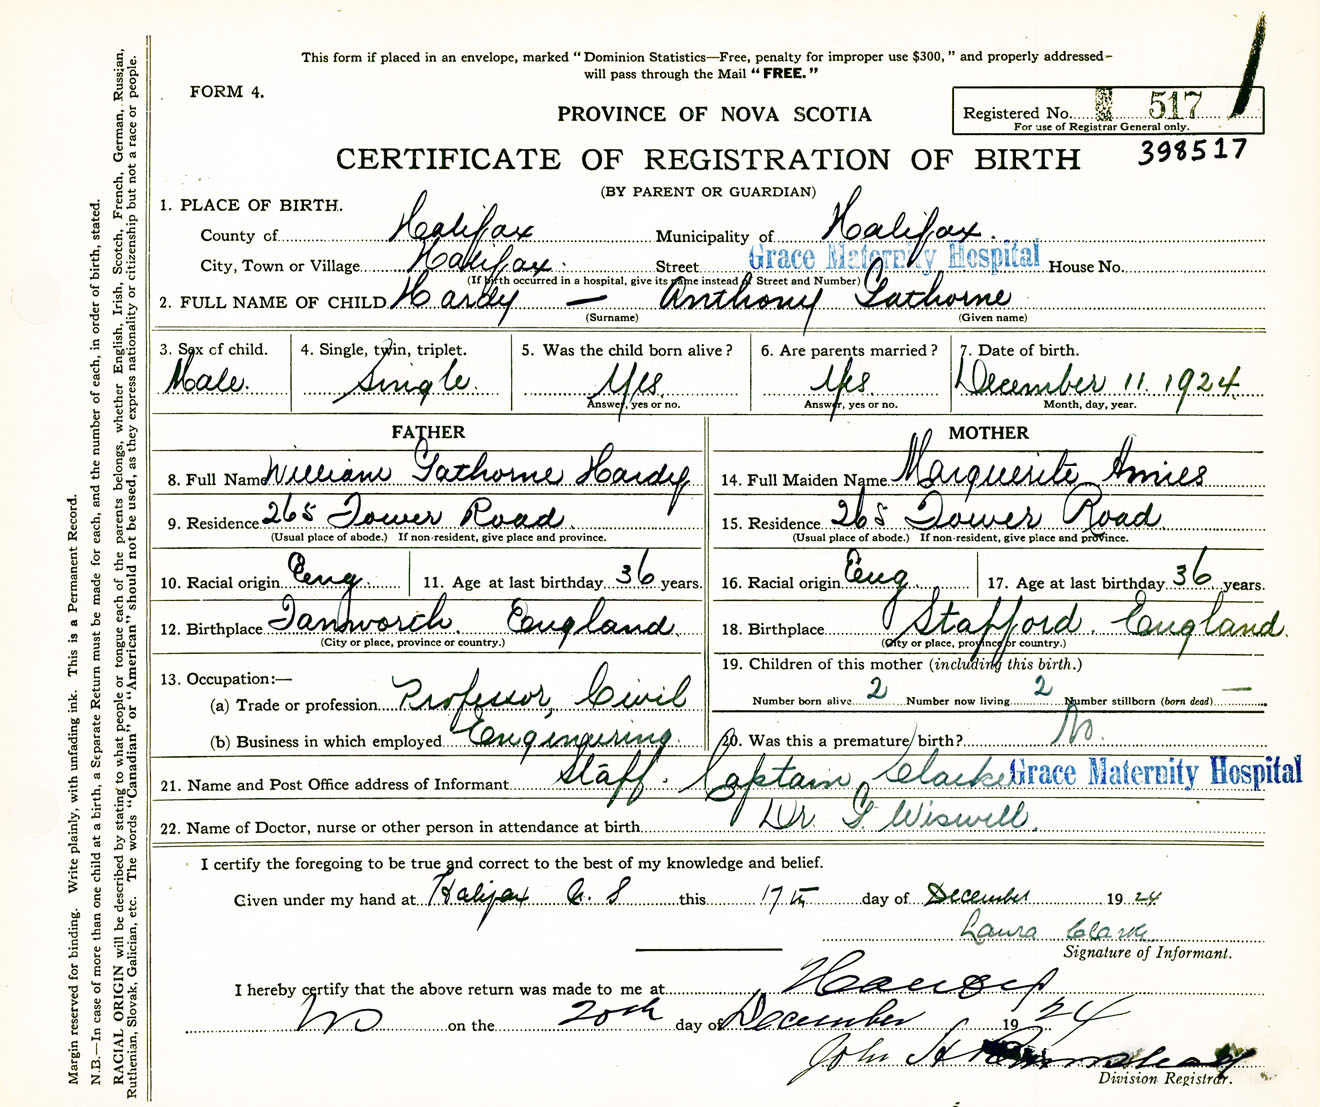 This form if placed in an envelope, marked "Dominion Statistics—Free, penalty for improper use $300," and properly addressed—
will pass through the Mail "FREE."
FORM 4.
PROVINCE OF NOVA SCOTIA
Registered No. 517
For use of Registrar General only.
398517
CERTIFICATE OF REGISTRATION OF BIRTH
(BY PARENT OR GUARDIAN)
1. PLACE OF BIRTH.
County of Halifax Municipality of Halifax.
City, Town or Village Halifax. Street Grace Maternity Hospital House No.
(If birth occurred in a hospital, give its name instead of Street and Number)
2. FULL NAME OF CHILD Hardy — Anthony Gathorne
(Surname) (Given name)
3. Sex of child. 4. Single, twin, triplet. 5. Was the child born alive? 6. Are parents married? 7. Date of birth.
Male. Single. Yes Yes December 11. 1924.
Answer, yes or no. Answer, yes or no. Month, day, year.
FATHER
8. Full Name William Gathorne Hardy
9. Residence 265 Tower Road.
(Usual place of abode.) If non-resident, give place and province.
10. Racial origin Eng. 11. Age at last birthday 36 years.
12. Birthplace Tamworth. England.
(City or place, province or country.)
13. Occupation:—
(a) Trade or profession Professor, Civil
(b) Business in which employed Engineering.
MOTHER
14. Full Maiden Name Marguerite Amies
15. Residence 265 Tower Road.
(Usual place of abode.) If non-resident, give place and province.
16. Racial origin Eng. 17. Age at last birthday 36 years.
18. Birthplace Stafford. England.
(City or place, province or country.)
19. Children of this mother (including this birth.)
Number born alive 2 Number now living 2 Number stillborn (born dead) —
20. Was this a premature birth? No.
21. Name and Post Office address of Informant Staff. Captain Clarke Grace Maternity Hospital
22. Name of Doctor, nurse or other person in attendance at birth Dr. G. Wiswell.
I certify the foregoing to be true and correct to the best of my knowledge and belief.
Given under my hand at Halifax N. S this 17th day of December 1924
Laura Clark
Signature of Informant.
I hereby certify that the above return was made to me at
on the 20th day of December 1924
John H
Division Registrar.
Margin reserved for binding. Write plainly, with unfading ink. This is a Permanent Record.
N.B.—In case of more than one child at a birth, a Separate Return must be made for each, and the number of each, in order of birth, stated.
RACIAL ORIGIN will be described by stating to what people or tongue each of the parents belongs, whether English, Irish, Scotch, French, German, Russian,
Ruthenian, Slovak, Galician, etc. The words "Canadian" or "American" should not be used, as they express nationality or citizenship but not a race or people.